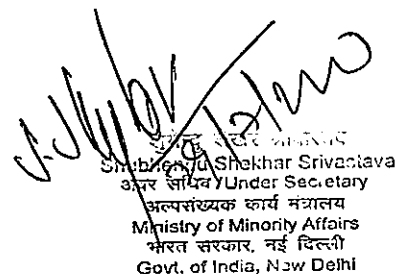 Shubhendu Shekhar Srivastava
अवर सचिव/Under Secretary
अल्पसंख्यक कार्य मंत्रालय
Ministry of Minority Affairs
भारत सरकार, नई दिल्ली
Govt. of India, New Delhi